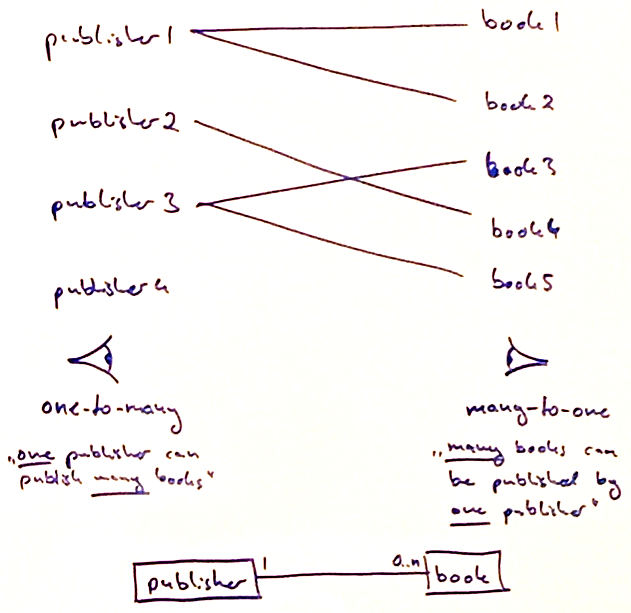 publisher 1
book 1
book 2
publisher 2
book 3
publisher 3
book 4
book 5
publisher 4
one-to-many
„one publisher can
publish many books"
many-to-one
„many books can
be published by
one publisher"
1
0..n
publisher
book